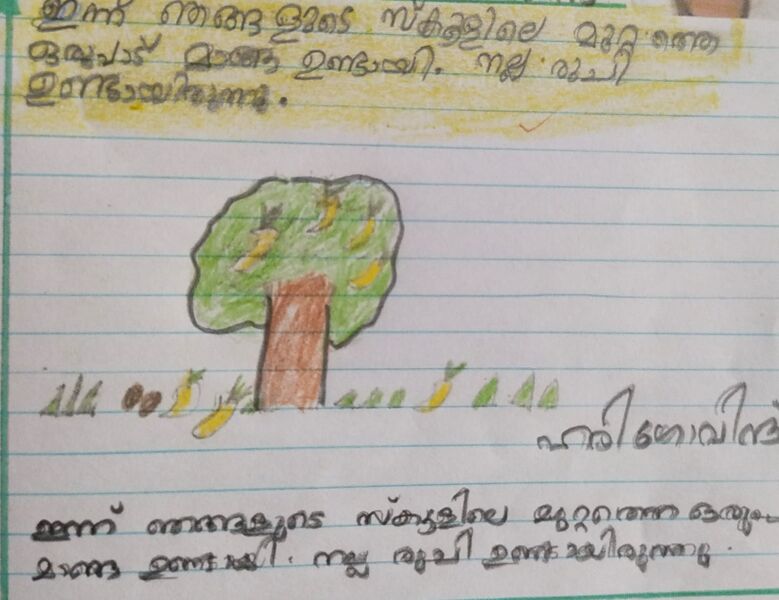 ഇന്ന് ഞങ്ങളുടെ സ്കൂളിലെ മുറ്റത്തെ
ഒരുപാട് മാങ്ങ ഉണ്ടായി. നല്ല രുചി
ഉണ്ടായിരുന്നു.
ഹരിഗോവിന്ദ്
ഇന്ന് ഞങ്ങളുടെ സ്കൂളിലെ മുറ്റത്തെ
മാങ്ങ ഉണ്ടായി. നല്ല രുചി ഉണ്ടായിരുന്നു.